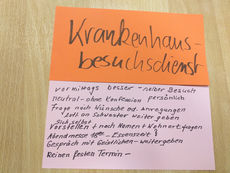 Krankenhaus-
besuchsdienst
vormittags besser - neuer Besuch
neutral - ohne Konfession persönlich
Frage nach Wünsche od. Anregungen
evtl an Schwester weiter geben
Sich selbst
Vorstellen + nach Namen + Wohnort fragen
Abendmesse 18°° - Essenszeit!
Gespräch mit Geistlichen - weitergeben
Keinen festen Termin -